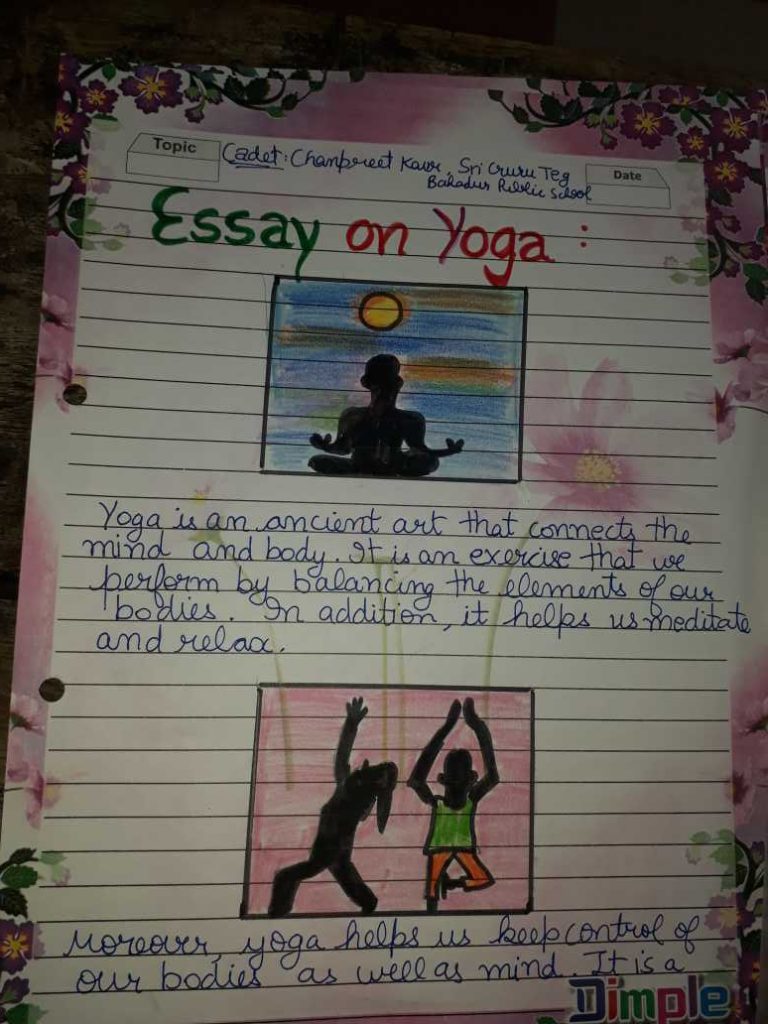 Topic
Cadet: Chanpreet Kaur, Sri Guru Teg
Bahadur Public School
Date
Essay on Yoga :
Yoga is an ancient art that connects the
mind and body. It is an exercise that we
perform by balancing the elements of our
bodies. In addition, it helps us meditate
and relax.
Moreover, yoga helps us keep control of
our bodies as well as mind. It is a
Dimple
1